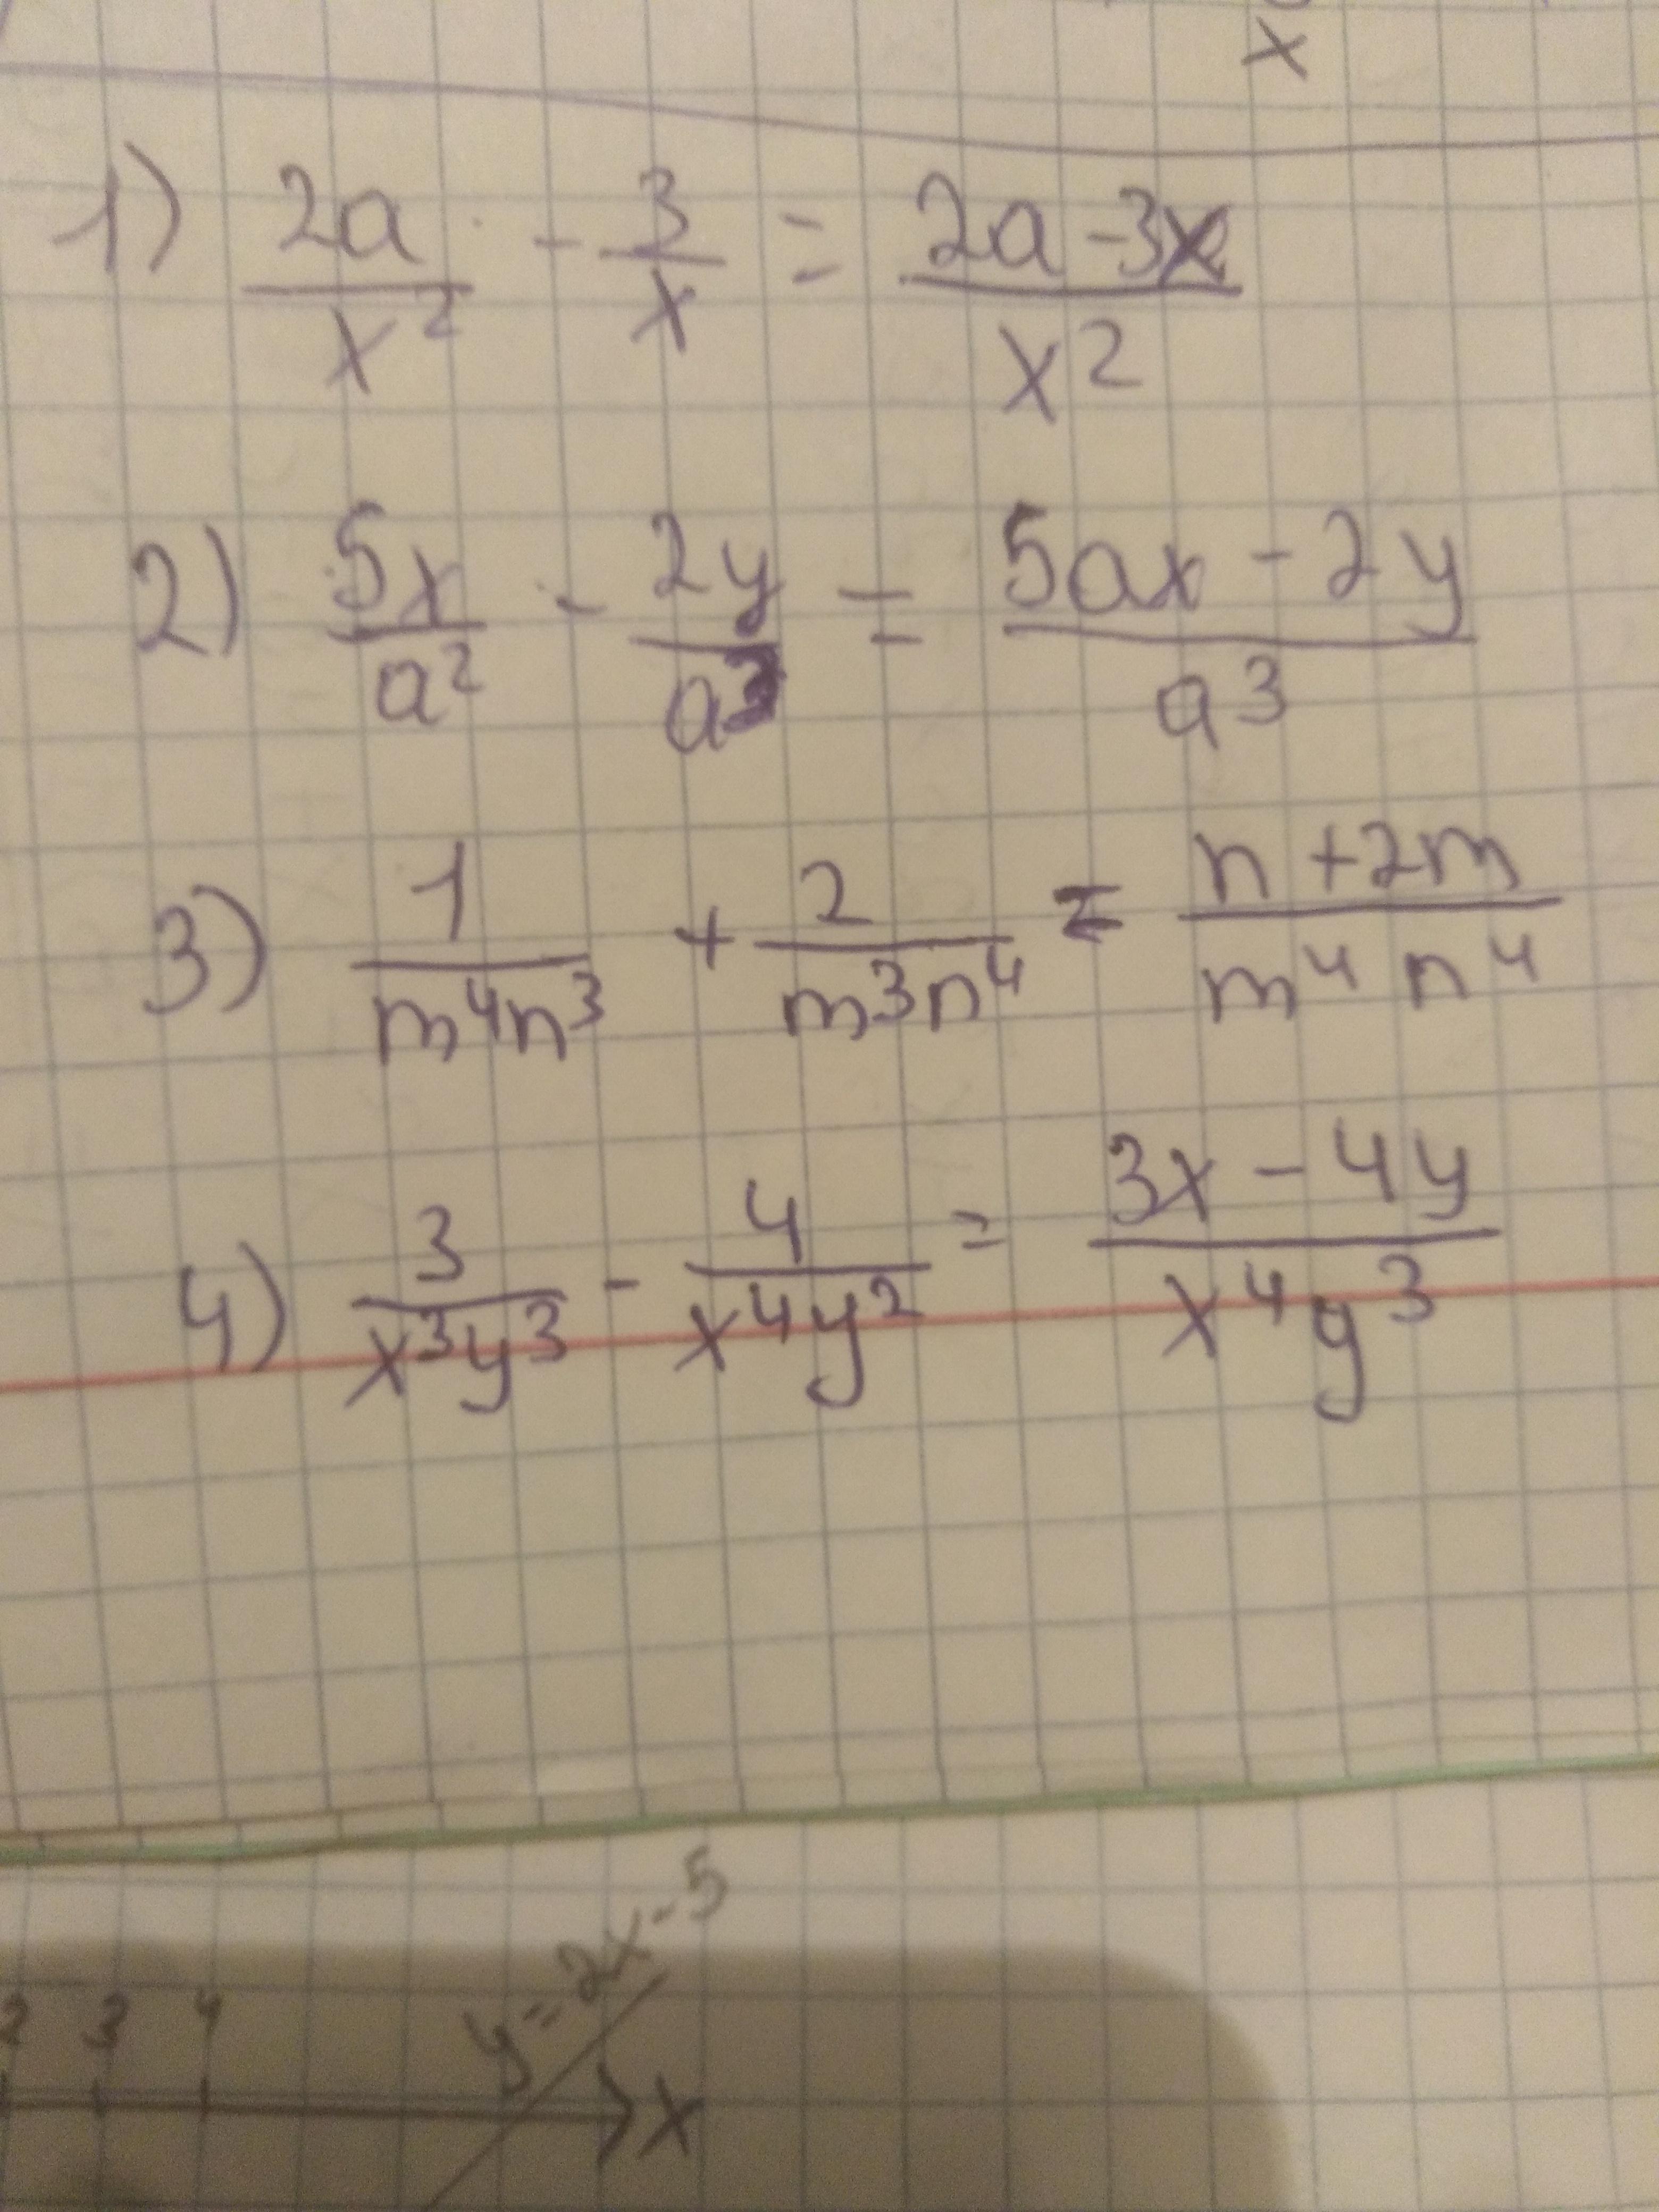 x
1) 2a/x² - 3/x = (2a-3x)/x²
2) 5x/a² - 2y/a³ = (5ax-2y)/a³
3) 1/(m⁴n³) + 2/(m³n⁴) = (n+2m)/(m⁴n⁴)
4) 3/(x³y³) - 4/(x⁴y²) = (3x-4y)/(x⁴y³)
y=2x-5
2 3 4
x